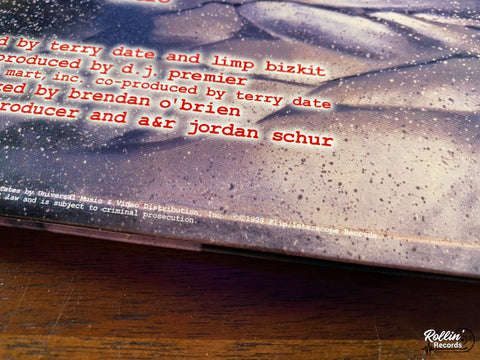 d by terry date and limp bizkit
produced by d.j. premier
mart, inc. co-produced by terry date
ed by brendan o'brien
roducer and a&r jordan schur
tates by Universal Music & Video Distribution, Inc. ℗©1999 Flip/Interscope Records.
law and is subject to criminal prosecution.
Rollin'
Records